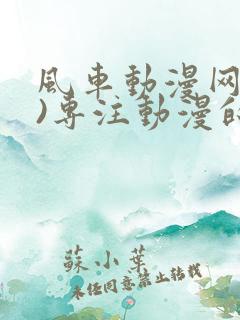 風车動漫网
)专注動漫的
蘇小葉
未经同意禁止转载